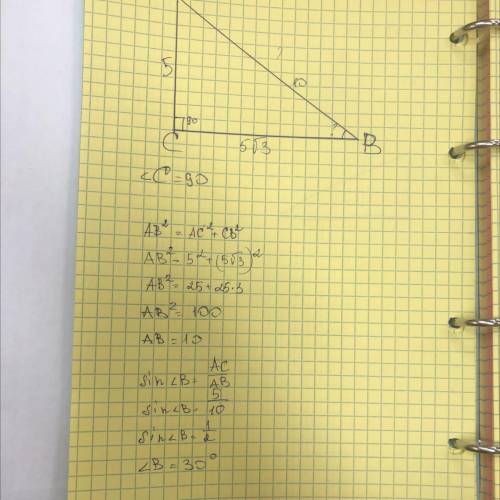 ?
5
10
90
?
C
B
5√3
<C° = 90
AB² = AC² + CB²
AB² = 5² + (5√3)²
AB² = 25 + 25·3
AB² = 100
AB = 10
sin<B = AC/AB
sin<B = 5/10
sin<B = 1/2
<B = 30°